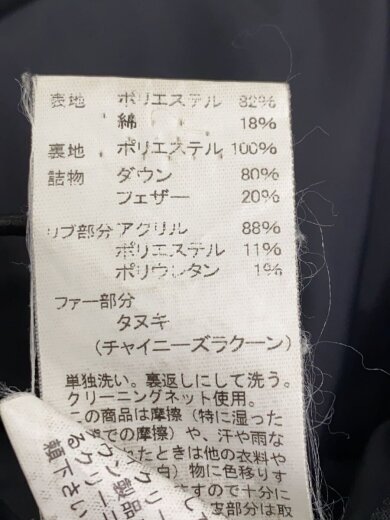 表地 ポリエステル 82%
綿 18%
裏地 ポリエステル 100%
詰物 ダウン 80%
フェザー 20%
リブ部分 アクリル 88%
ポリエステル 11%
ポリウレタン 1%
ファー部分
タヌキ
(チャイニーズラクーン)
単独洗い。裏返しにして洗う。
クリーニングネット使用。
この商品は摩擦(特に湿った
での摩擦)や、汗や雨な
れたときは他の衣料や
白)物に色移りす
すので十分に
支部分は取
ウン製品
るクリーニ
頼下さい